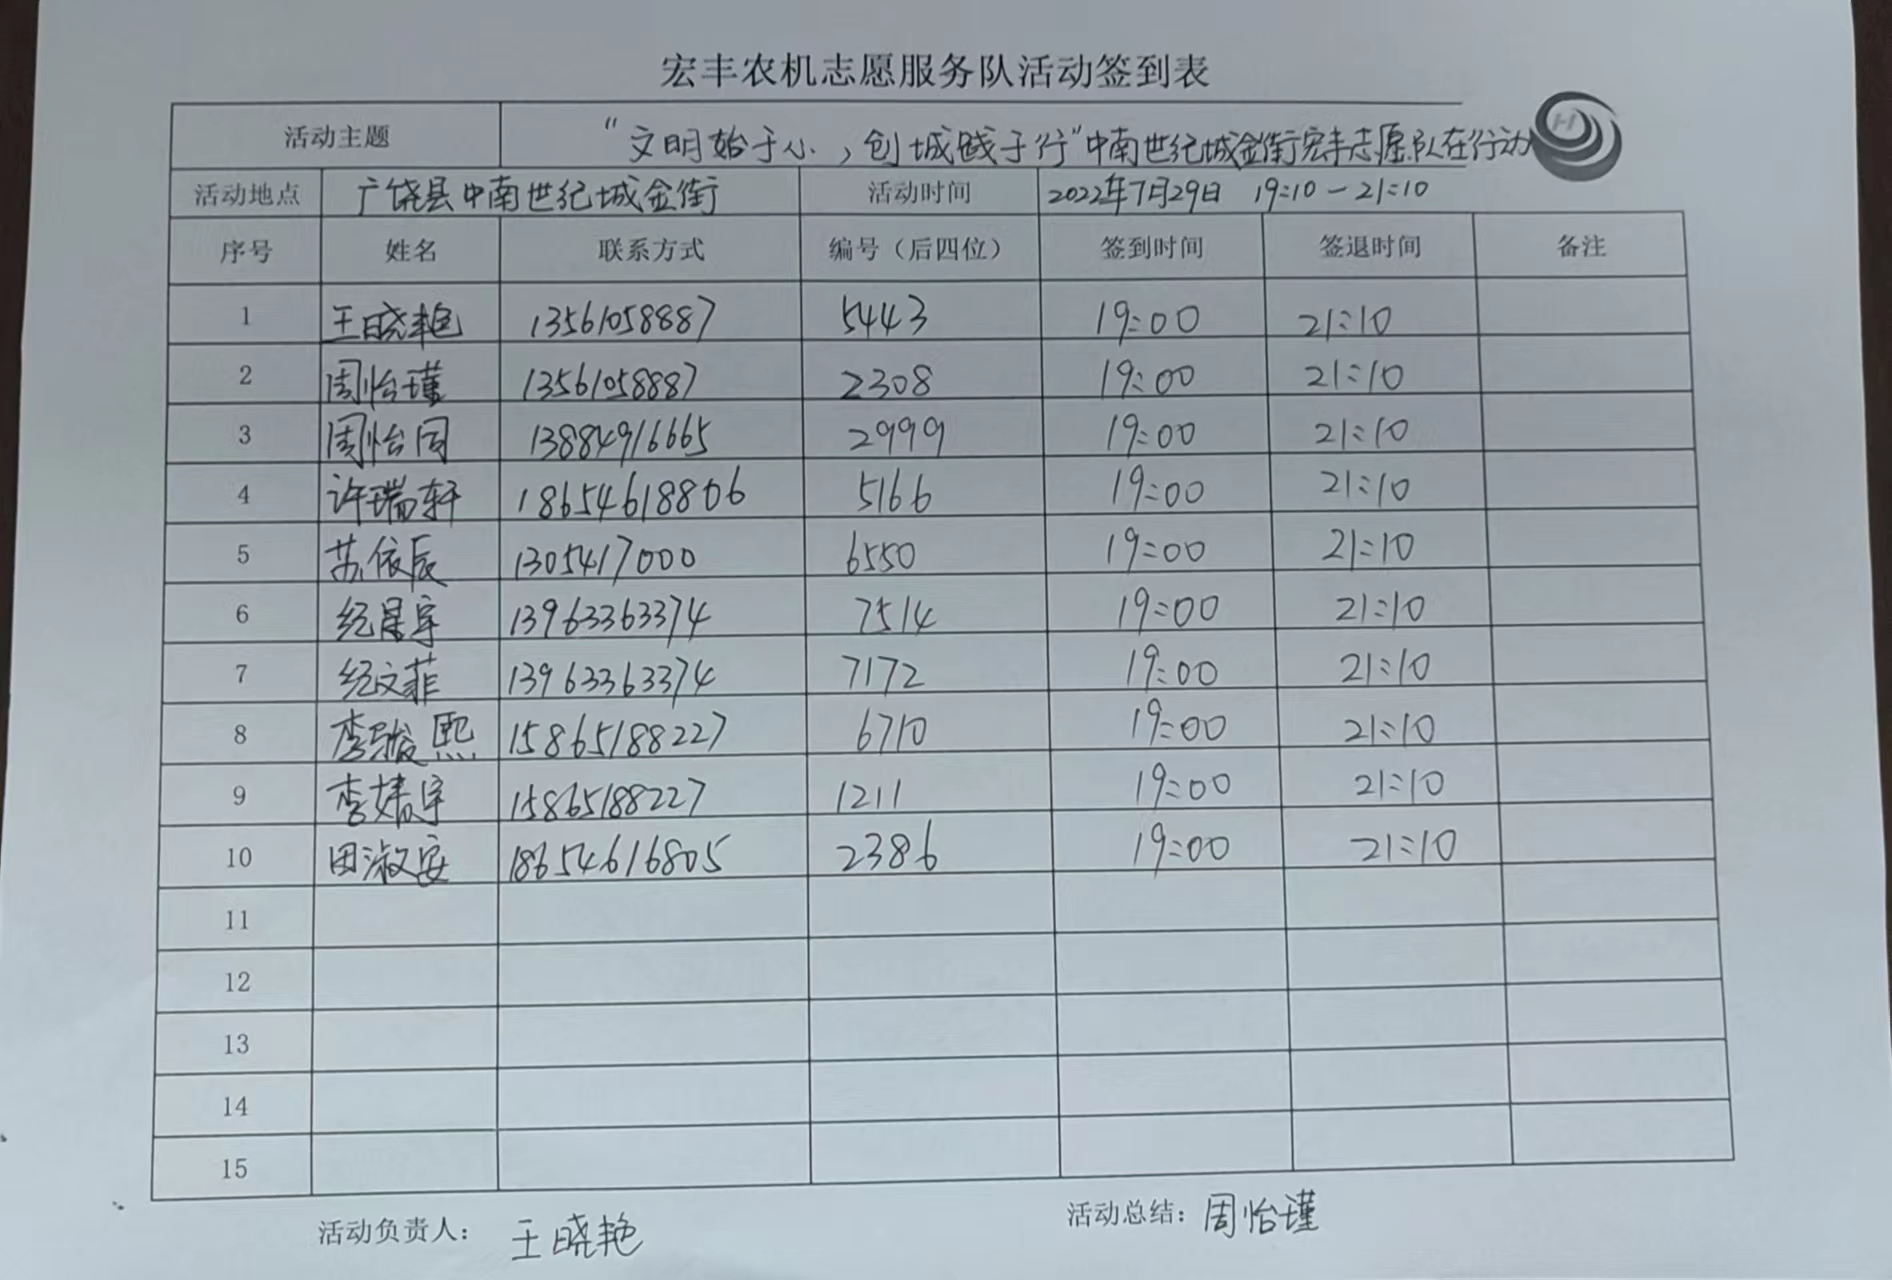 宏丰农机志愿服务队活动签到表
活动主题 “文明始于小,创城践于行”中南世纪城金街宏丰志愿队在行动
活动地点 广饶县中南世纪城金街 活动时间 2022年7月29日 19:10-21:10
序号 姓名 联系方式 编号(后四位) 签到时间 签退时间 备注
1 王晓艳 13561058887 5443 19:00 21:10
2 周怡瑾 13561058887 2308 19:00 21:10
3 周怡同 13884916665 2999 19:00 21:10
4 许瑞轩 18654618806 5166 19:00 21:10
5 苏依辰 1305417000 6550 19:00 21:10
6 纪星宇 13963363374 7514 19:00 21:10
7 纪文菲 13963363374 7172 19:00 21:10
8 李骏熙 15865188227 6710 19:00 21:10
9 李婧宇 15865188227 1211 19:00 21:10
10 田淑安 18654616805 2386 19:00 21:10
11
12
13
14
15
活动负责人: 王晓艳 活动总结: 周怡瑾